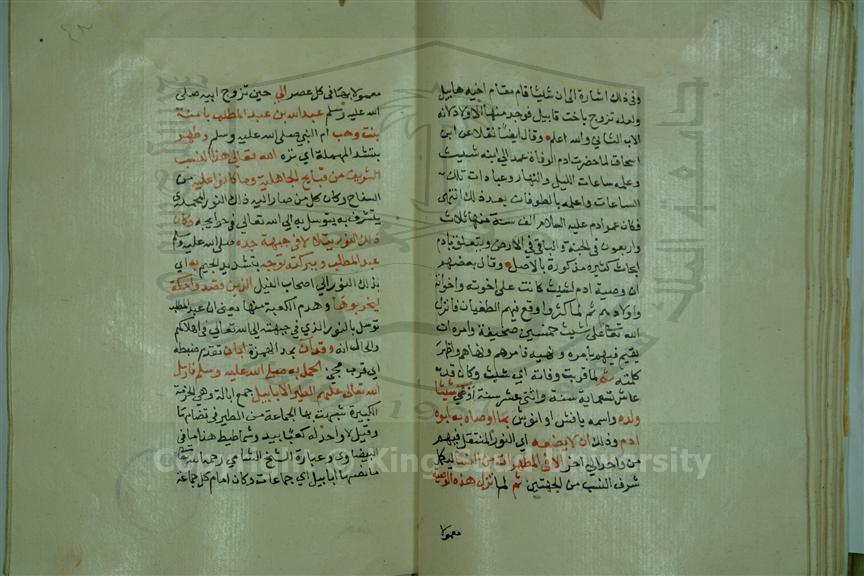 وفي ذلك اشارة الى ان شيثا قام مقام اخيه هابيل
ولعله تزوج باخت قابيل فوجد منها الاولاد لانه
الاب الثاني والله اعلم وقال ايضا نقلا عن ابن
اسحاق لما حضرت ادم الوفاة عهد الى ابنه شيث
وعلمه ساعات الليل والنهار وعبادات تلك
الساعات واعلمه بالطوفان بعد ذلك انتهى
فكان عمر ادم عليه السلام الف سنة منها ثلاث
واربعون في الجنة والباقي في الارض ويتعلق بادم
ابحاث كثيرة مذكورة بالاصل وقال بعضهم
ان وصية ادم لشيث كانت على اخوته واخواته
واولاده ثم لما كثروا وقع فيهم الطغيان فانزل
الله تعالى على شيث خمسين صحيفة وامره ان
يقيم فيهم بامره ونهيه فامرهم ونهاهم واظهر
كلمته ثم لما قربت وفاته اي شيث وكان قد
عاش تسعماية سنة واثنتي عشر سنة اوصى شيث
ولده واسمه يانش او انوش بما اوصاه به ابوه
ادم وذلك ان لا يضعه اي النور المنتقل فيهم
من واحد الى اخر الا في المطهرات من النسا ليكمل
شرف النسب من الجهتين ثم لما تزل هذه الوصية
معمولا
معمولا بها في كل عصر الى حين تزوج ابيه صلى
الله عليه وسلم عبد الله بن عبد المطلب بامنة
بنت وهب ام النبي صلى الله عليه وسلم وطهر
بتشديد المهملة اي نزه الله تعالى هذا النسب
الشريف من قبايح الجاهلية وما كانوا عليه من
السفاح وكان كل من صار اليه ذلك النور المحمدي
يتشرف به يتوسل به الى الله تعالى في حوايجه وكان
ذلك النور يتلالا في جبهة جده صلى الله عليه وسلم
عبد المطلب وببركته توجه بتشديد الجيم به اي
بذلك النور الى اصحاب الفيل الذين قصدوا مكة
ليخربوها وهدم الكعبة منها روي ان عبد المطلب
توسل بالنور الذي في جبهته الى الله تعالى في اهلاكهم
والحال انه وقد ان بمد الهمزة ابان تقدم ضبطه
اي قرب مجي الحمل به صلى الله عليه وسلم فارسل
الله تعالى عليهم الطير الابابيل جمع ابالة وهي الحزمة
الكبيرة شبهت بها الجماعة من الطير في تضامها
وقيل لا واحد له كعبابيد وشماطيط هذا ما في
البيضاوي وعبارة الشيخ الشامي رحمه الله
ما نصها ابابيل اي جماعات وكان امام كل جماعة
Copyright © King Saud University
جامعة الملك سعود